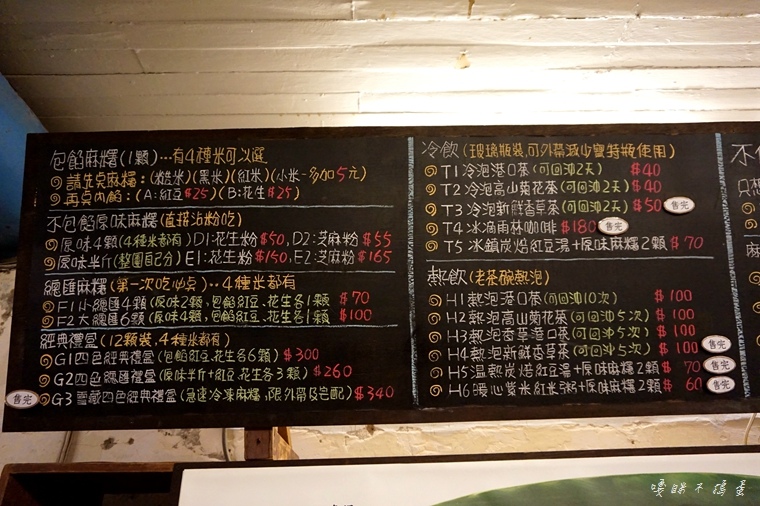 包餡麻糬(1顆)…有4種米可以選
請先点麻糬:(糯米)(黑米)(紅米)(小米-多加5元)
再点內餡:(A:紅豆$25)(B:花生$25)
不包餡原味麻糬(直接沾粉吃)
原味4顆(4種米都有)D1:花生粉$50,D2:芝麻粉$55
原味半斤(整團自己分)E1:花生粉$150,E2:芝麻粉$165
總匯麻糬(第一次吃必点)..4種米都有
F1小總匯4顆(原味2顆,包餡紅豆、花生各1顆 $70
F2大總匯6顆(原味4顆,包餡紅豆、花生各1顆 $100
經典禮盒(12顆裝,4種米都有)
G1四色經典禮盒(包餡紅豆、花生各6顆)$300
G2四色總匯禮盒(原味半斤+紅豆、花生各3顆)$260
售完 G3雪藏四色經典禮盒(急速冷凍麻糬,限外帶及宅配)$340
冷飲(玻璃瓶裝,可外帶減少寶特瓶使用)
T1冷泡港口茶(可回沖2天) $40
T2冷泡高山菊花茶(可回沖2天)$40
T3冷泡新鮮香草茶(可回沖2天)$50 售完
T4冰滴雨林咖啡 $180 售完
T5冰鎮炭焙紅豆湯+原味麻糬2顆 $70
熱飲(老茶碗熱泡)
H1熱泡港口茶(可回沖10次) $100
H2熱泡高山菊花茶(可回沖5次)$100
H3熱泡香草港口茶(可回沖5次)$100
H4熱泡新鮮香草茶(可回沖5次)$100 售完
H5溫熱炭焙紅豆湯+原味麻糬2顆$70 售完
H6暖心紫米紅米粥+原味麻糬2顆$60 售完
不
只
麻
嘎眯不搗蛋